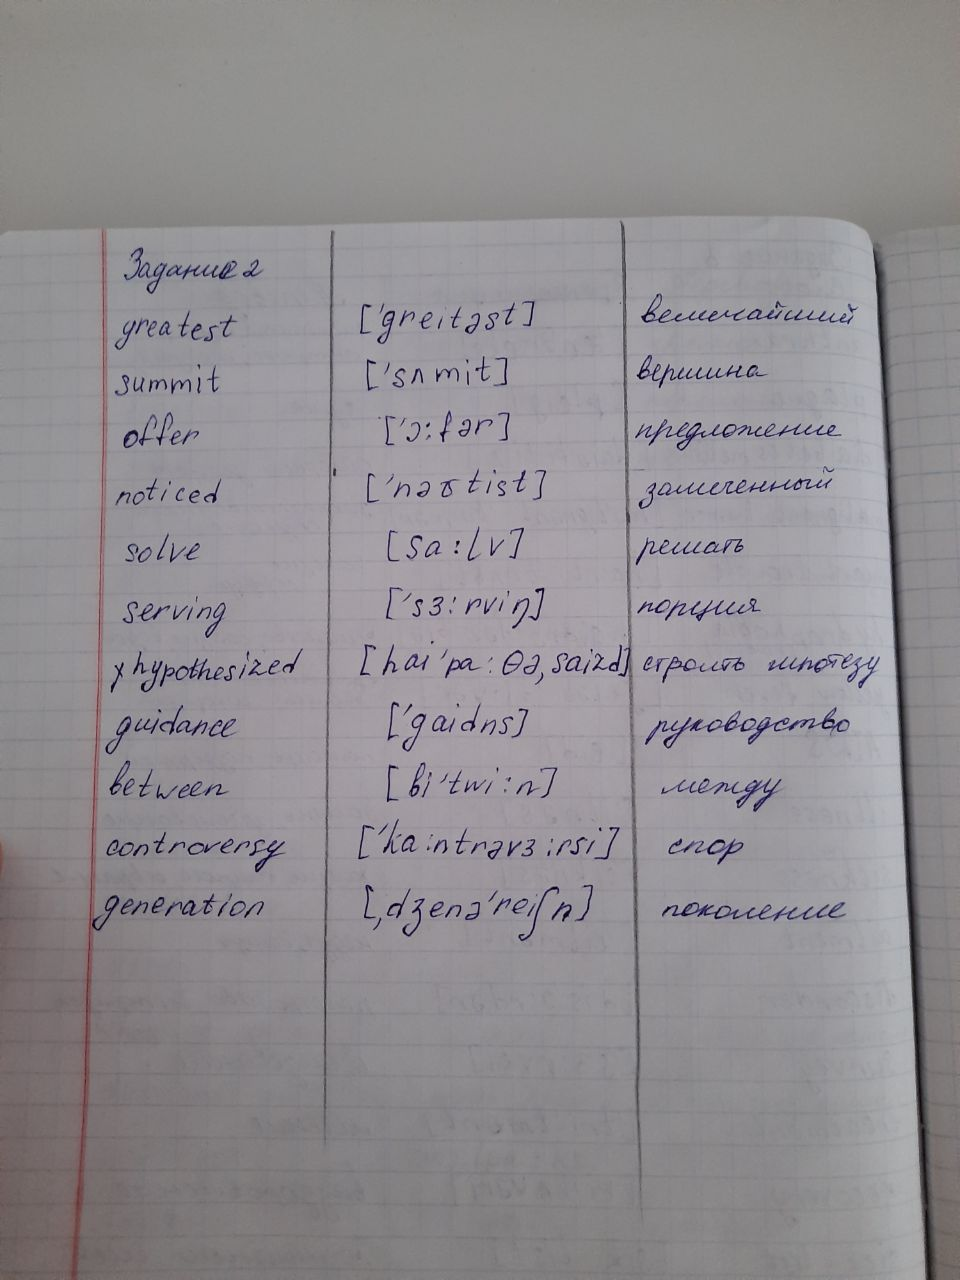 Задание 2
greatest ['greitəst] величайший
summit ['sʌmit] вершина
offer ['ɔ:fər] предложение
noticed ['nəʊtist] замеченный
solve [sa:lv] решать
serving ['sɜ:rviŋ] порция
hypothesized [hai'pa:θə,saizd] строить гипотезу
guidance ['gaidns] руководство
between [bi'twi:n] между
controversy ['ka:ntrəvɜ:rsi] спор
generation [,dʒenə'reiʃn] поколение